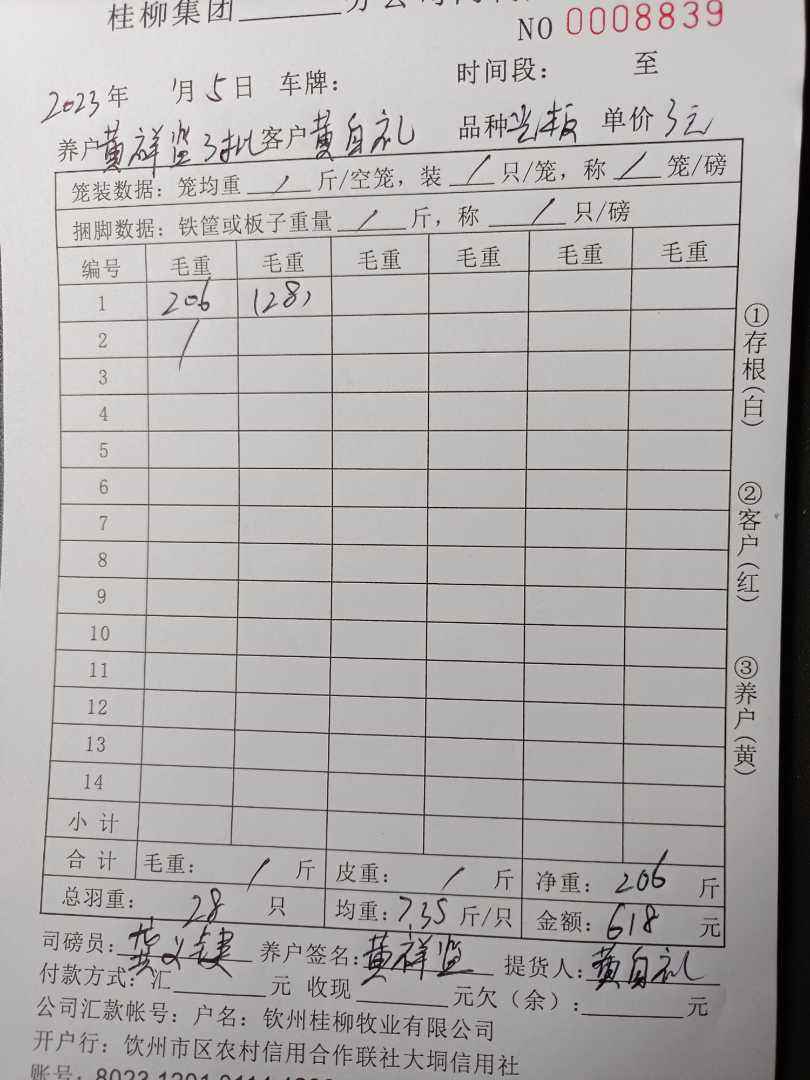 桂柳集团______分公司
NO 0008839
2023年 1月5日 车牌: 时间段: 至
养户黄祥监3批 客户黄自礼 品种 单价3元
笼装数据:笼均重 / 斤/空笼,装 / 只/笼,称 / 笼/磅
捆脚数据:铁筐或板子重量 / 斤,称 / 只/磅
编号 毛重 毛重 毛重 毛重 毛重 毛重
1 206 (28)
2 /
3
4
5
6
7
8
9
10
11
12
13
14
小计
合计 毛重: / 斤 皮重: / 斤 净重: 206 斤
总羽重: 28 只 均重: 7.35 斤/只 金额: 618 元
司磅员: 养户签名: 黄祥监 提货人: 黄自礼
付款方式:汇______元 收现______元欠(余):______元
公司汇款帐号:户名:钦州桂柳牧业有限公司
开户行:钦州市区农村信用合作联社大垌信用社
账号:8023 1201 0114
①存根(白)
②客户(红)
③养户(黄)